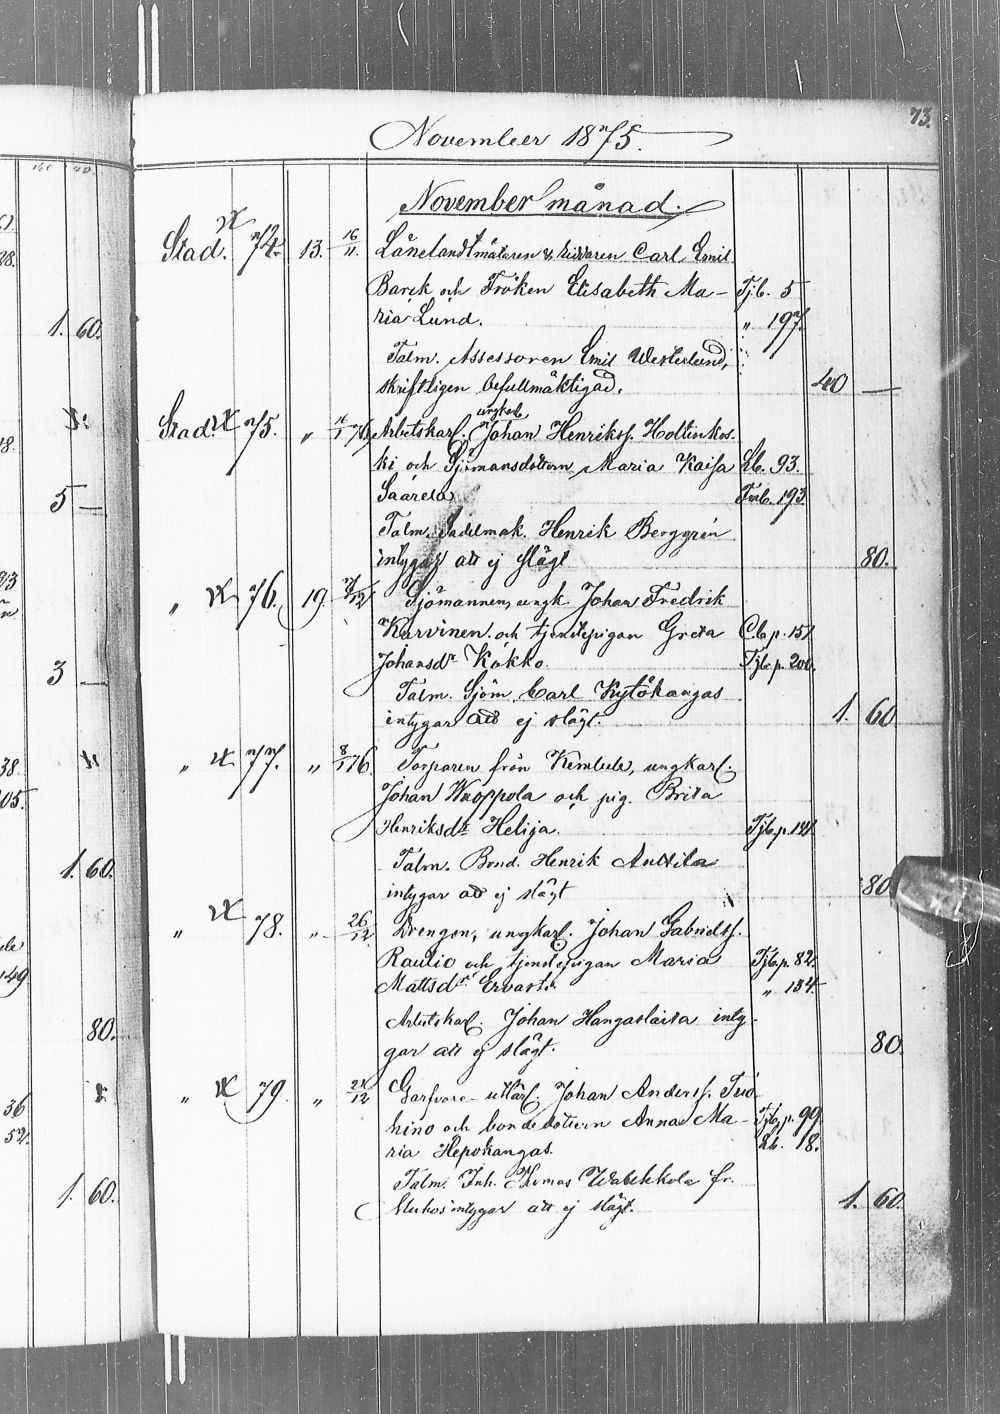 73.
November 1875.
November månad.
Stad. 74. 13. 16/11. Länelandtmätaren & Riddaren Carl Emil
Barck och Fröken Elisabeth Ma- Tjb. 5
ria Lund. " 197.
Talm. Assessoren Emil Westerlund,
skriftligen befullmäktigad. 40 —
ungkarl
Stad. 75. " Arbetskarl. Johan Henrikss. Holtinkos-
ki och Sjömansdottern Maria Kaisa Lb. 93.
Saarela 193.
Talm. Sadelmak. Henrik Berggrén
intygar att ej slägt 80.
" 76. 19. Sjömannen, ungk. Johan Fredrik
Karvinen och tjenstepigan Greta Cb p. 151
Johansdr Kokko. Tjb. p. 200.
Talm. Sjöm. Carl Kytökangas
intygar att ej slägt. 1. 60
" 77. " 8/1 76. Torparen från Kembele, ungkarl.
Johan Wuoppola och pig. Brita
Henriksdr Helija. Tjb. p.
Talm. Bond. Henrik Anttila
intygar att ej slägt 80
" 78. " 26/12 Drengen, ungkarl. Johan Gabrielss.
Rautio och tjenstepigan Maria Tjb. p. 82.
Mattsdr Ervasti. " 134.
Arbetskarl. Johan Hangaslaita inty-
gar att ej slägt. 80.
" 79. " Garfvare- Johan Anderss. Tuo-
hino och bondedottern Anna Ma- Tjb. p. 99
ria Hepokangas. Lb. 18.
Talm. Inh. Thomas fr.
Muhos intygar att ej slägt. 1. 60.
1. 60.
5 —
3 —
1. 60.
80.
1. 60.